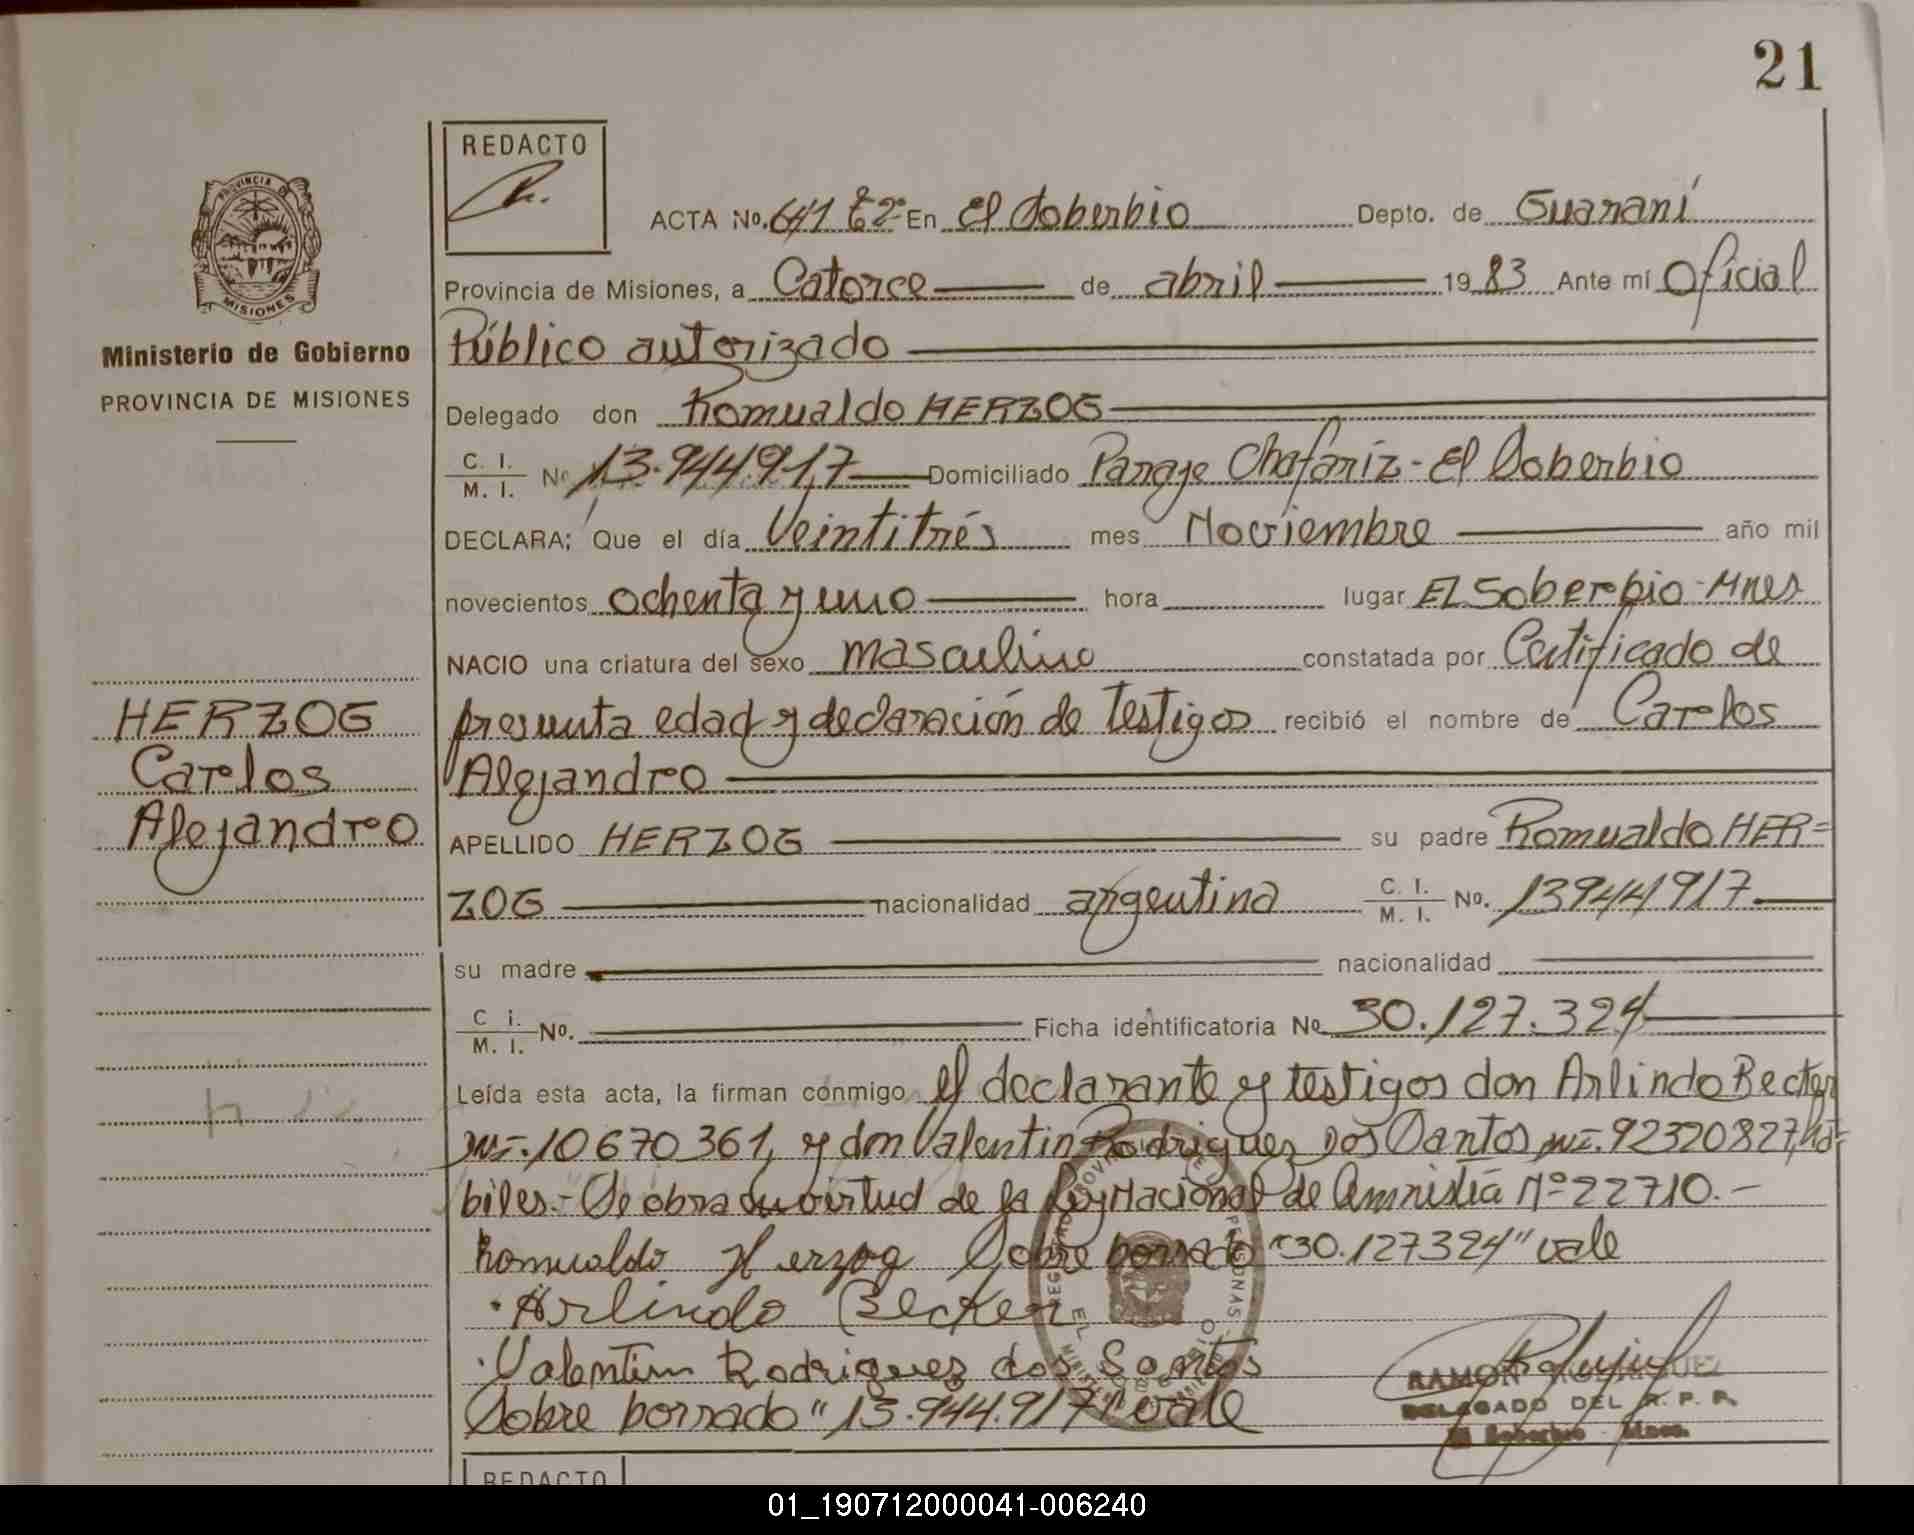 21
REDACTO
PROVINCIA DE
MISIONES
Ministerio de Gobierno
PROVINCIA DE MISIONES
ACTA No. 641 t2º En El Soberbio Depto. de Guaraní
Provincia de Misiones, a Catorce de abril 1983 Ante mí Oficial
Público autorizado
Delegado don Romualdo HERZOG
C. I. M. I. No 13.944.917 Domiciliado Paraje Chafariz - El Soberbio
DECLARA; Que el día Veintitrés mes Noviembre año mil
novecientos ochenta y uno hora lugar EL Soberbio-Mnes
NACIO una criatura del sexo masculino constatada por Certificado de
presunta edad y declaración de Testigos recibió el nombre de Carlos
Alejandro
HERZOG
Carlos
Alejandro
APELLIDO HERZOG su padre Romualdo HER=
ZOG nacionalidad argentina C. I. M. I. No. 13944917
su madre nacionalidad
C i. M. I. No. Ficha identificatoria No 30.127.324
Leída esta acta, la firman conmigo el declarante y testigos don Arlindo Becker
MI-.10670361, y don Valentin Rodriguez Dos Santos MI-.92320827, há-
biles.- Se obra en virtud de la Ley Nacional de Amnistía Nº 22710.-
Romualdo Herzog Sobre borrado "30.127324" vale
Arlindo Becker
Valentim Rodriguez dos Santos
Sobre borrado "13.944.917" vale
RAMON
DELEGADO DEL R. P. P.
El Soberbio - Mnes.
REDACTO
01_190712000041-006240